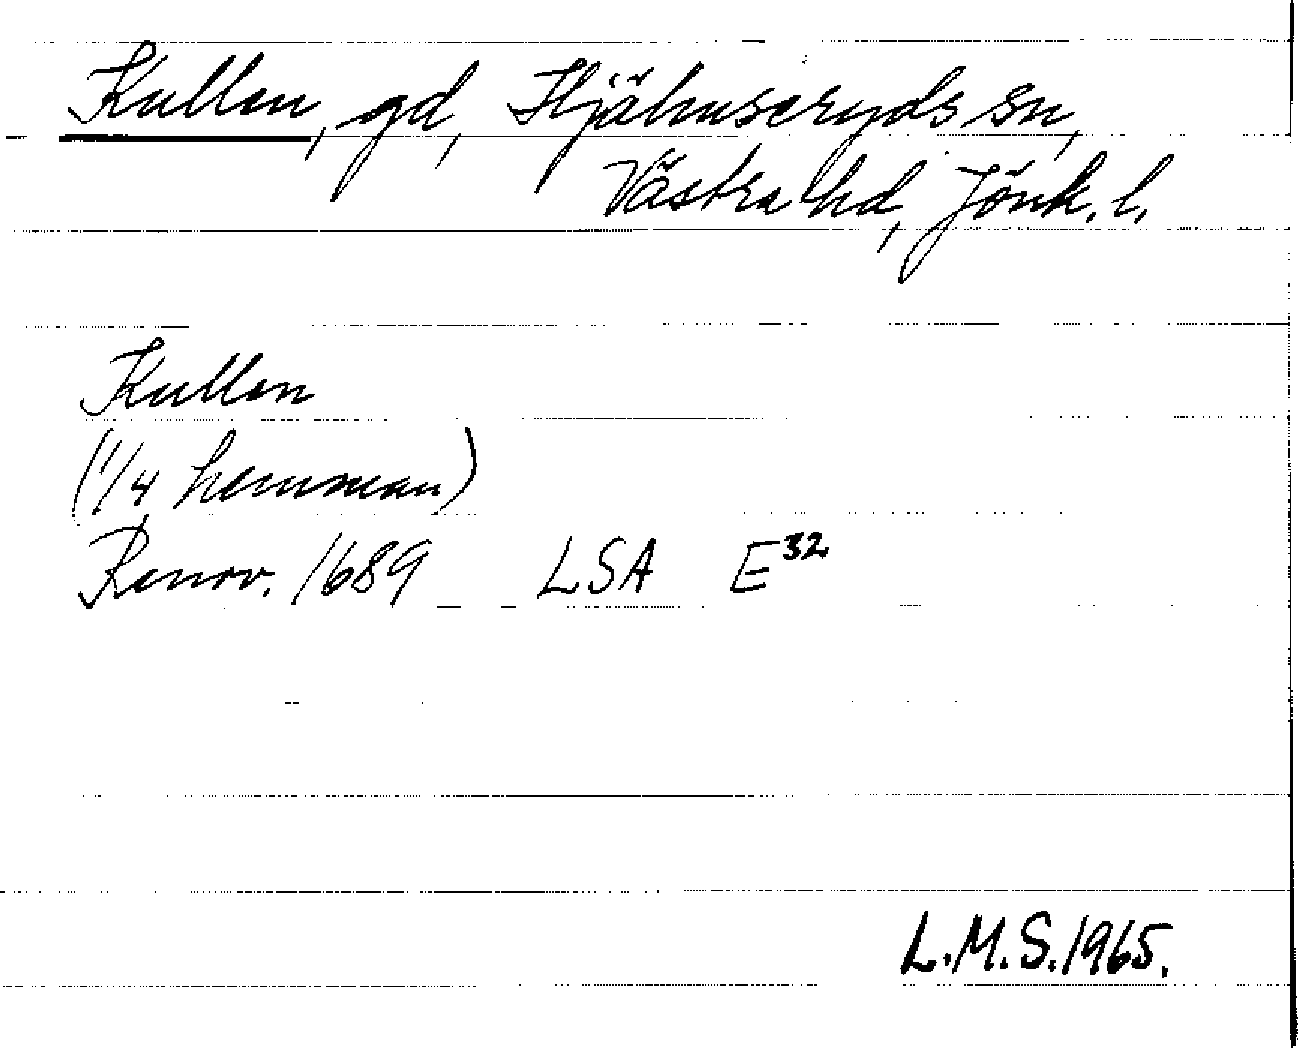 Kullen, gd, Hjälmseryds sn,
Västra hd, Jönk. l.
Kullen
(1/4 hemman)
Renov. 1689 LSA E³²
L.M.S. 1965.